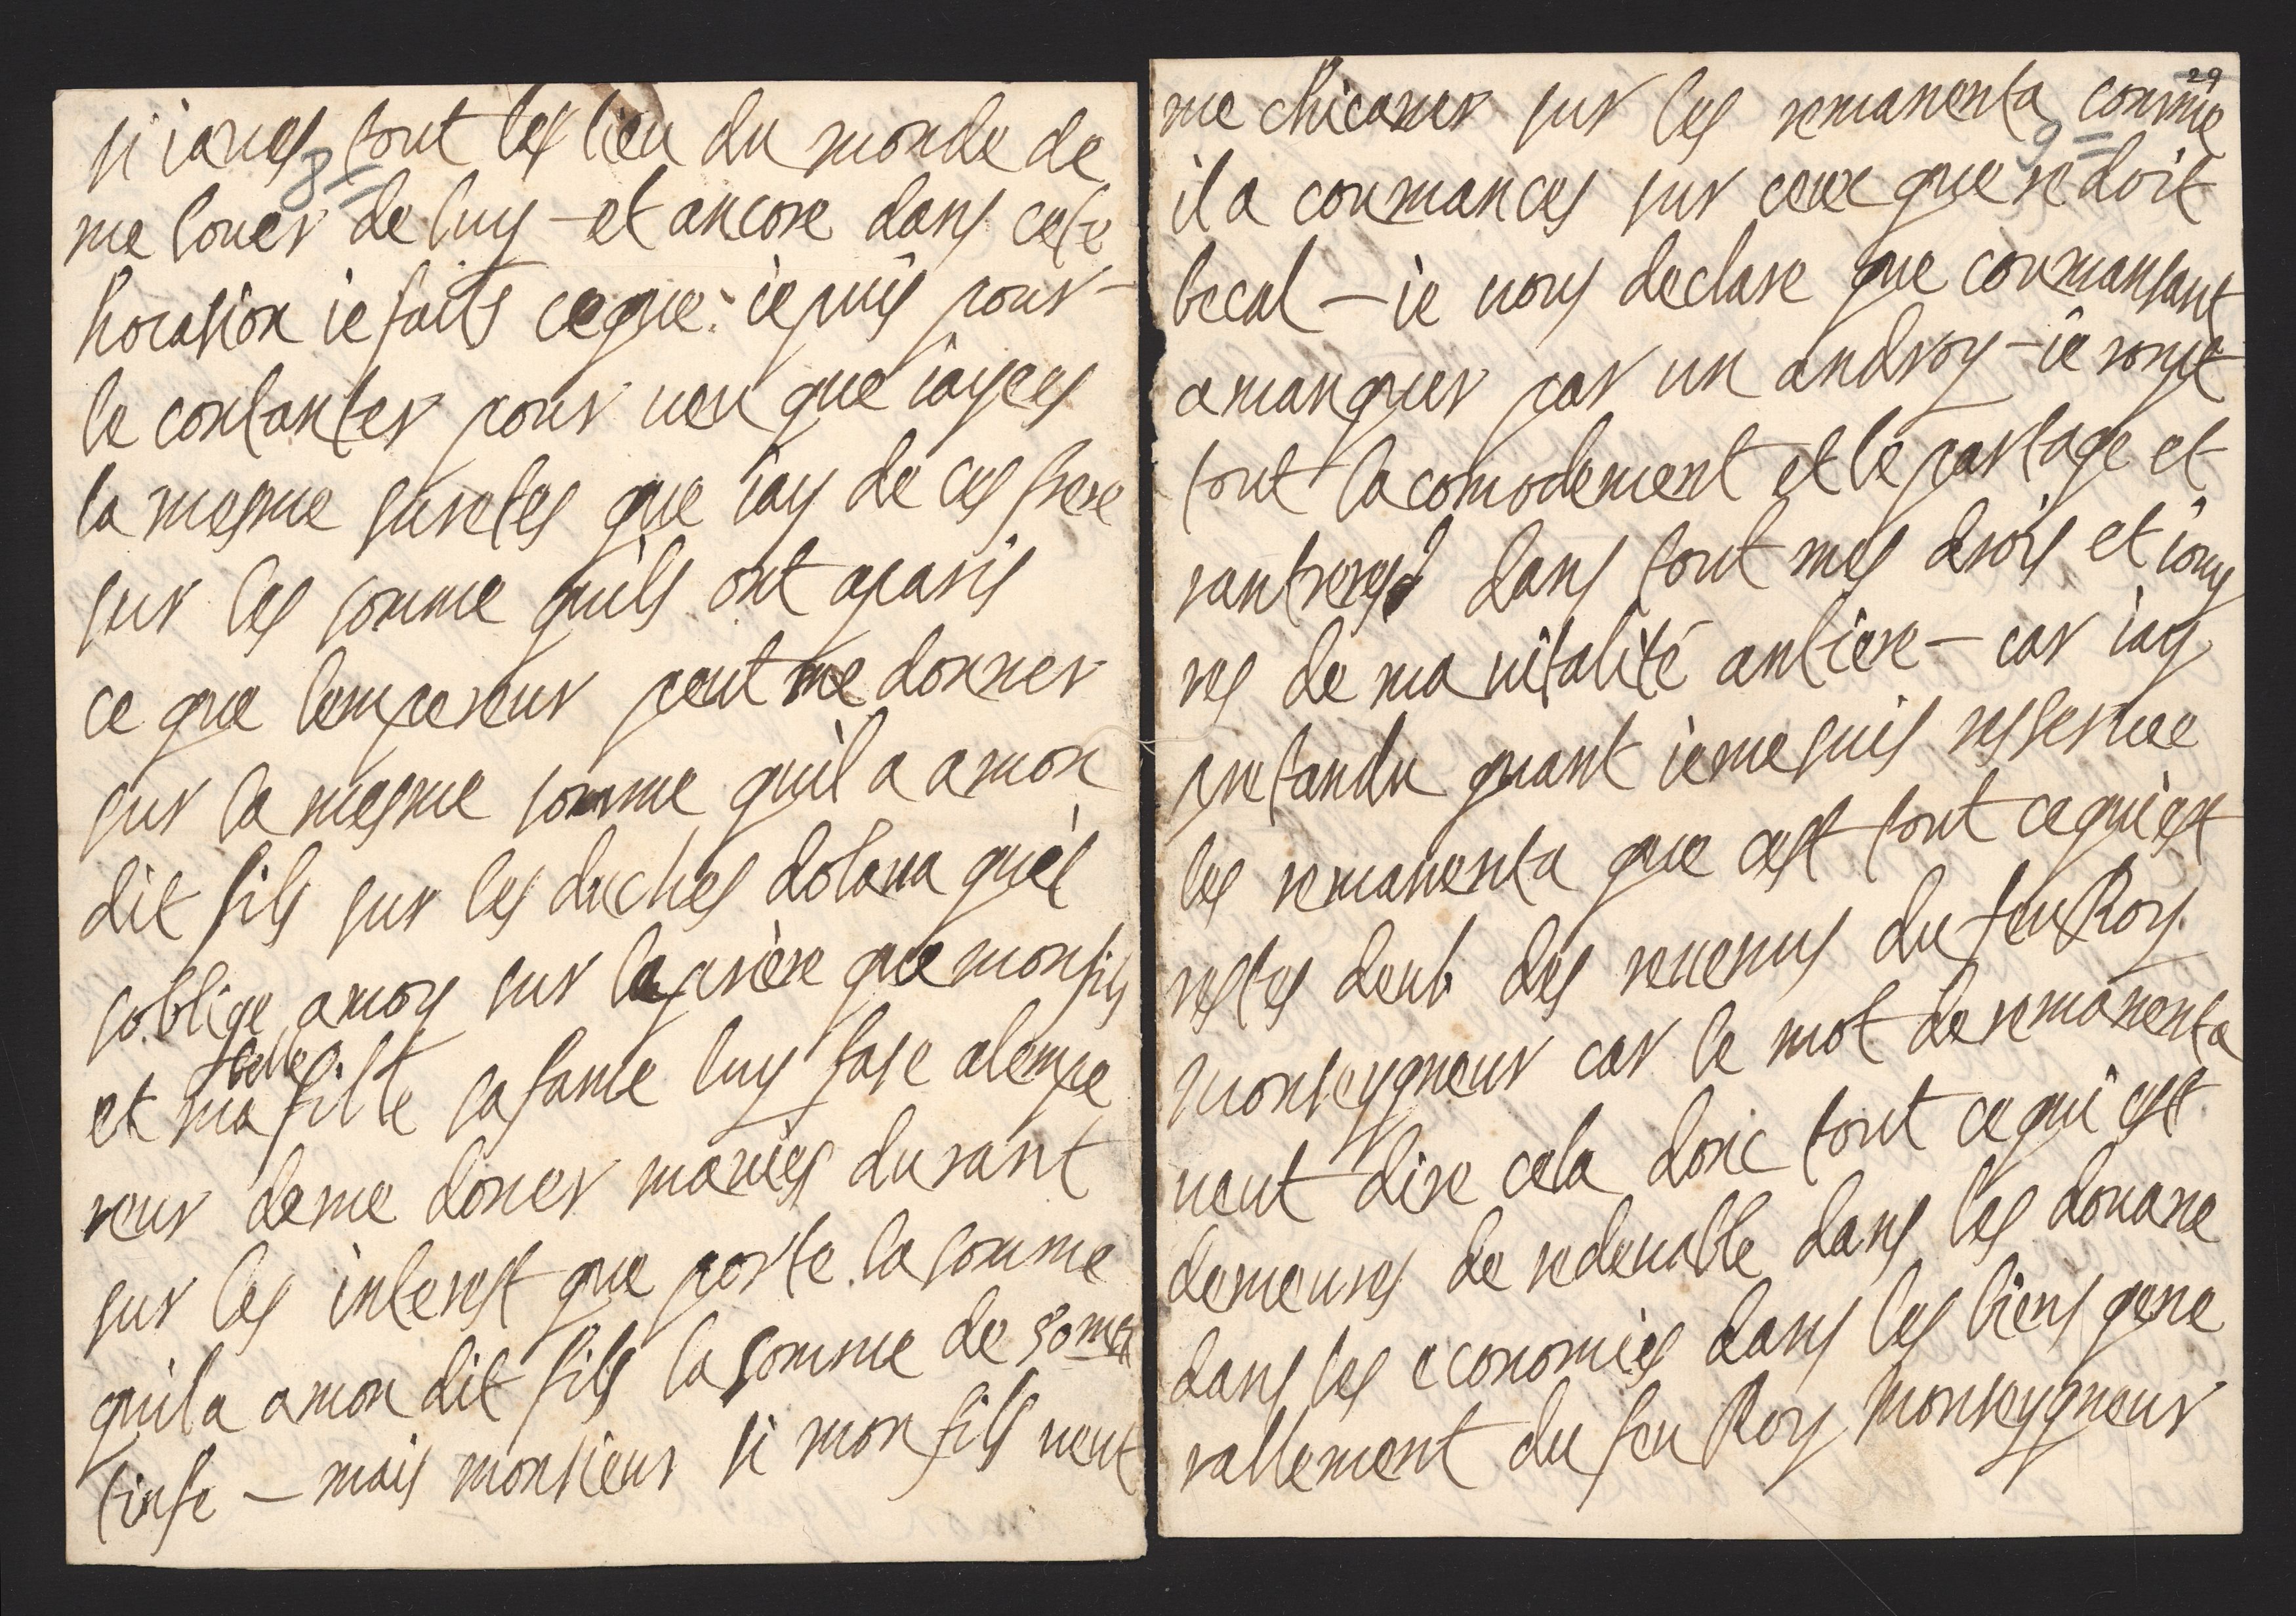 si iavves tout les lieu du monde de
8=
me louer de luy - et ancore dans cete
hocasion ie faits ce que ie puis pour -
le contanter pour veu que iayees
la mesme suretes que iay de ces frere
sur les somme quils ont aparis
ce que lempereur peut me donner
sur la mesme somme quil a amon
dit fils sur les duches dolaua quil
soblige amoy sur la priere que mon fils
et ma belle fille sa fame luy fase alempe
reur de me doner mavies durant
sur les interest que porte la somme
quila amon dit fils la somme de
tinfe - mais monsieur si mon fils veut
29
me chicaner sur les remanenta comme
9=
il a conmances sur ceux que redoit
becal - ie vous declare que conmansant
amanquer par un androy - ie romt
tout lacomodement et le partage et
rantreres dans tout mes drois et iouy
res de ma vitalité antiere - car iay
pretandu quant ie me suis resservee
les remanenta que cest tout ce qui est
restes deub des revenus du feu Roy
monseygneur car le mot de remanenta
veut dire cela donc tout ce qui est
demeures de redevable dans les douane
dans les economies dans les biens gene
rallement du feu Roy Monseygneur